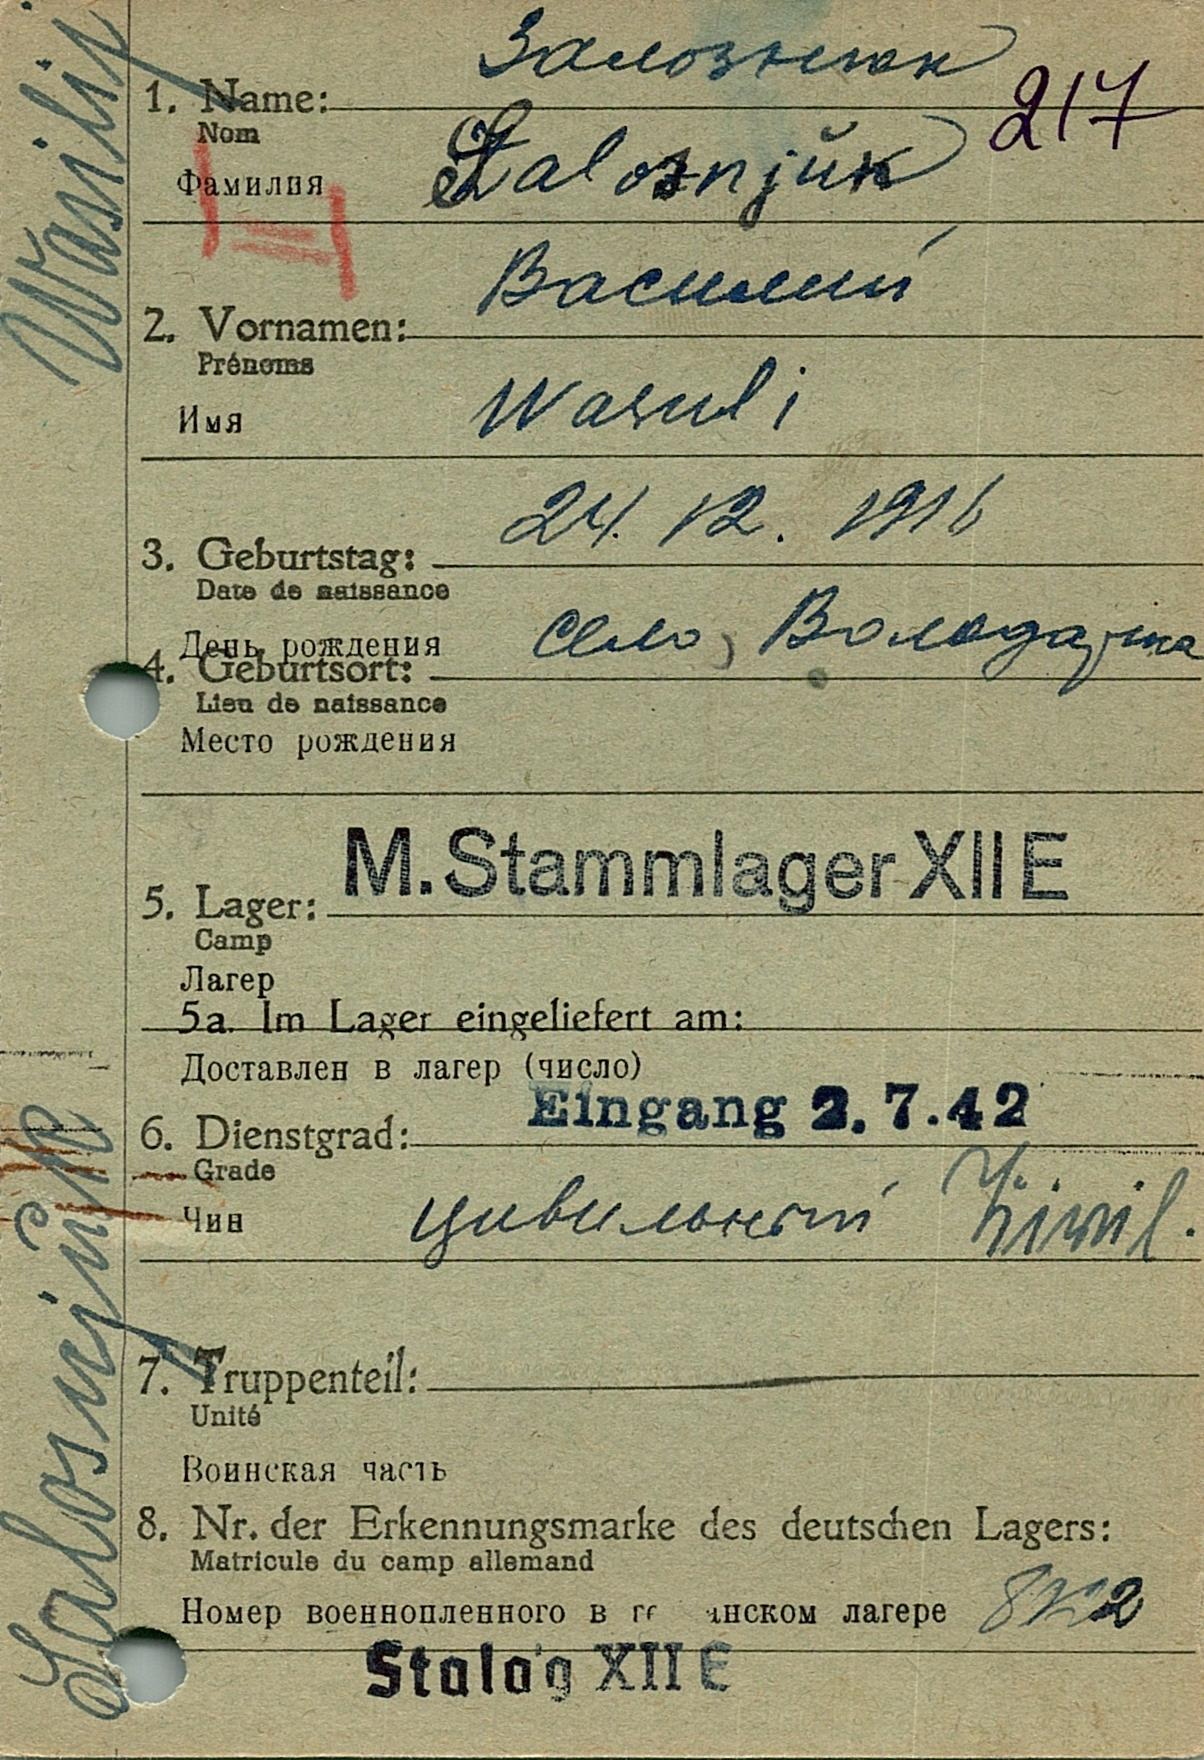 Wasilij
Залознюк
1. Name:
217
Nom
Фамилия
Salosnjük
Василий
2. Vornamen:
Prénoms
Имя
Wasuli
24. 12. 1916
3. Geburtstag:
Date de naissance
День рождения
село,
4. Geburtsort:
Lieu de naissance
Место рождения
M. Stammlager XII E
5. Lager:
Camp
Лагер
5a. Im Lager eingeliefert am:
Доставлен в лагер (число)
Eingang 2.7.42
6. Dienstgrad:
Grade
Чин
цивильный Zivil.
7. Truppenteil:
Unité
Воинская часть
8. Nr. der Erkennungsmarke des deutschen Lagers:
Matricule du camp allemand
Номер военнопленного в лагере
Stalag XII E
Salosnjük